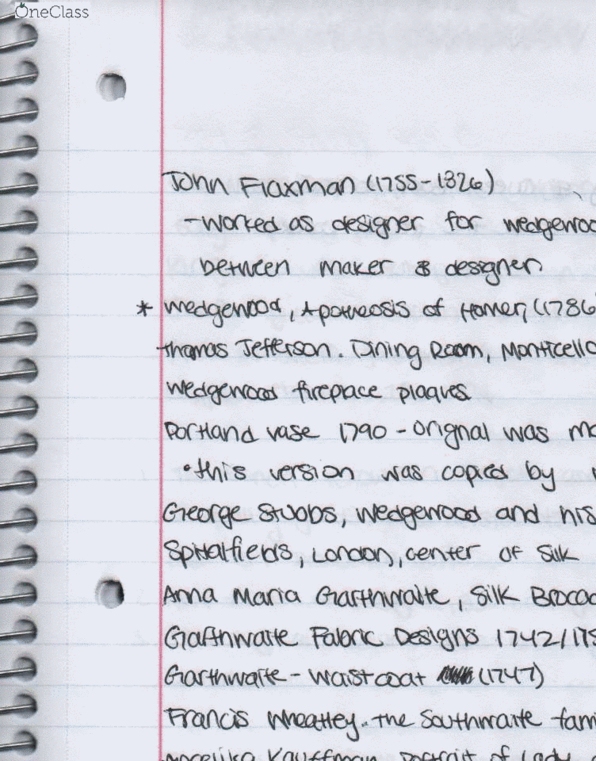 OneClass
John Flaxman (1755-1826)
-worked as designer for wedgewoo
between maker & designer
* wedgewood, Apotheosis of Homer, (1786
Thomas Jefferson. Dining Room, Monticello
wedgewood fireplace plaques
Portland vase 1790 - Orignal was ma
•this version was copied by
George Stubbs, wedgewood and his
Spitalfields, London, center of Silk
Anna Maria Garthwaite, Silk Brocad
Garthwaite Fabric Designs 1742/175
Garthwaite - waistcoat (1747)
Francis Wheatley. the Southwaite fami
Angelika Kauffman, Portrait of Lady